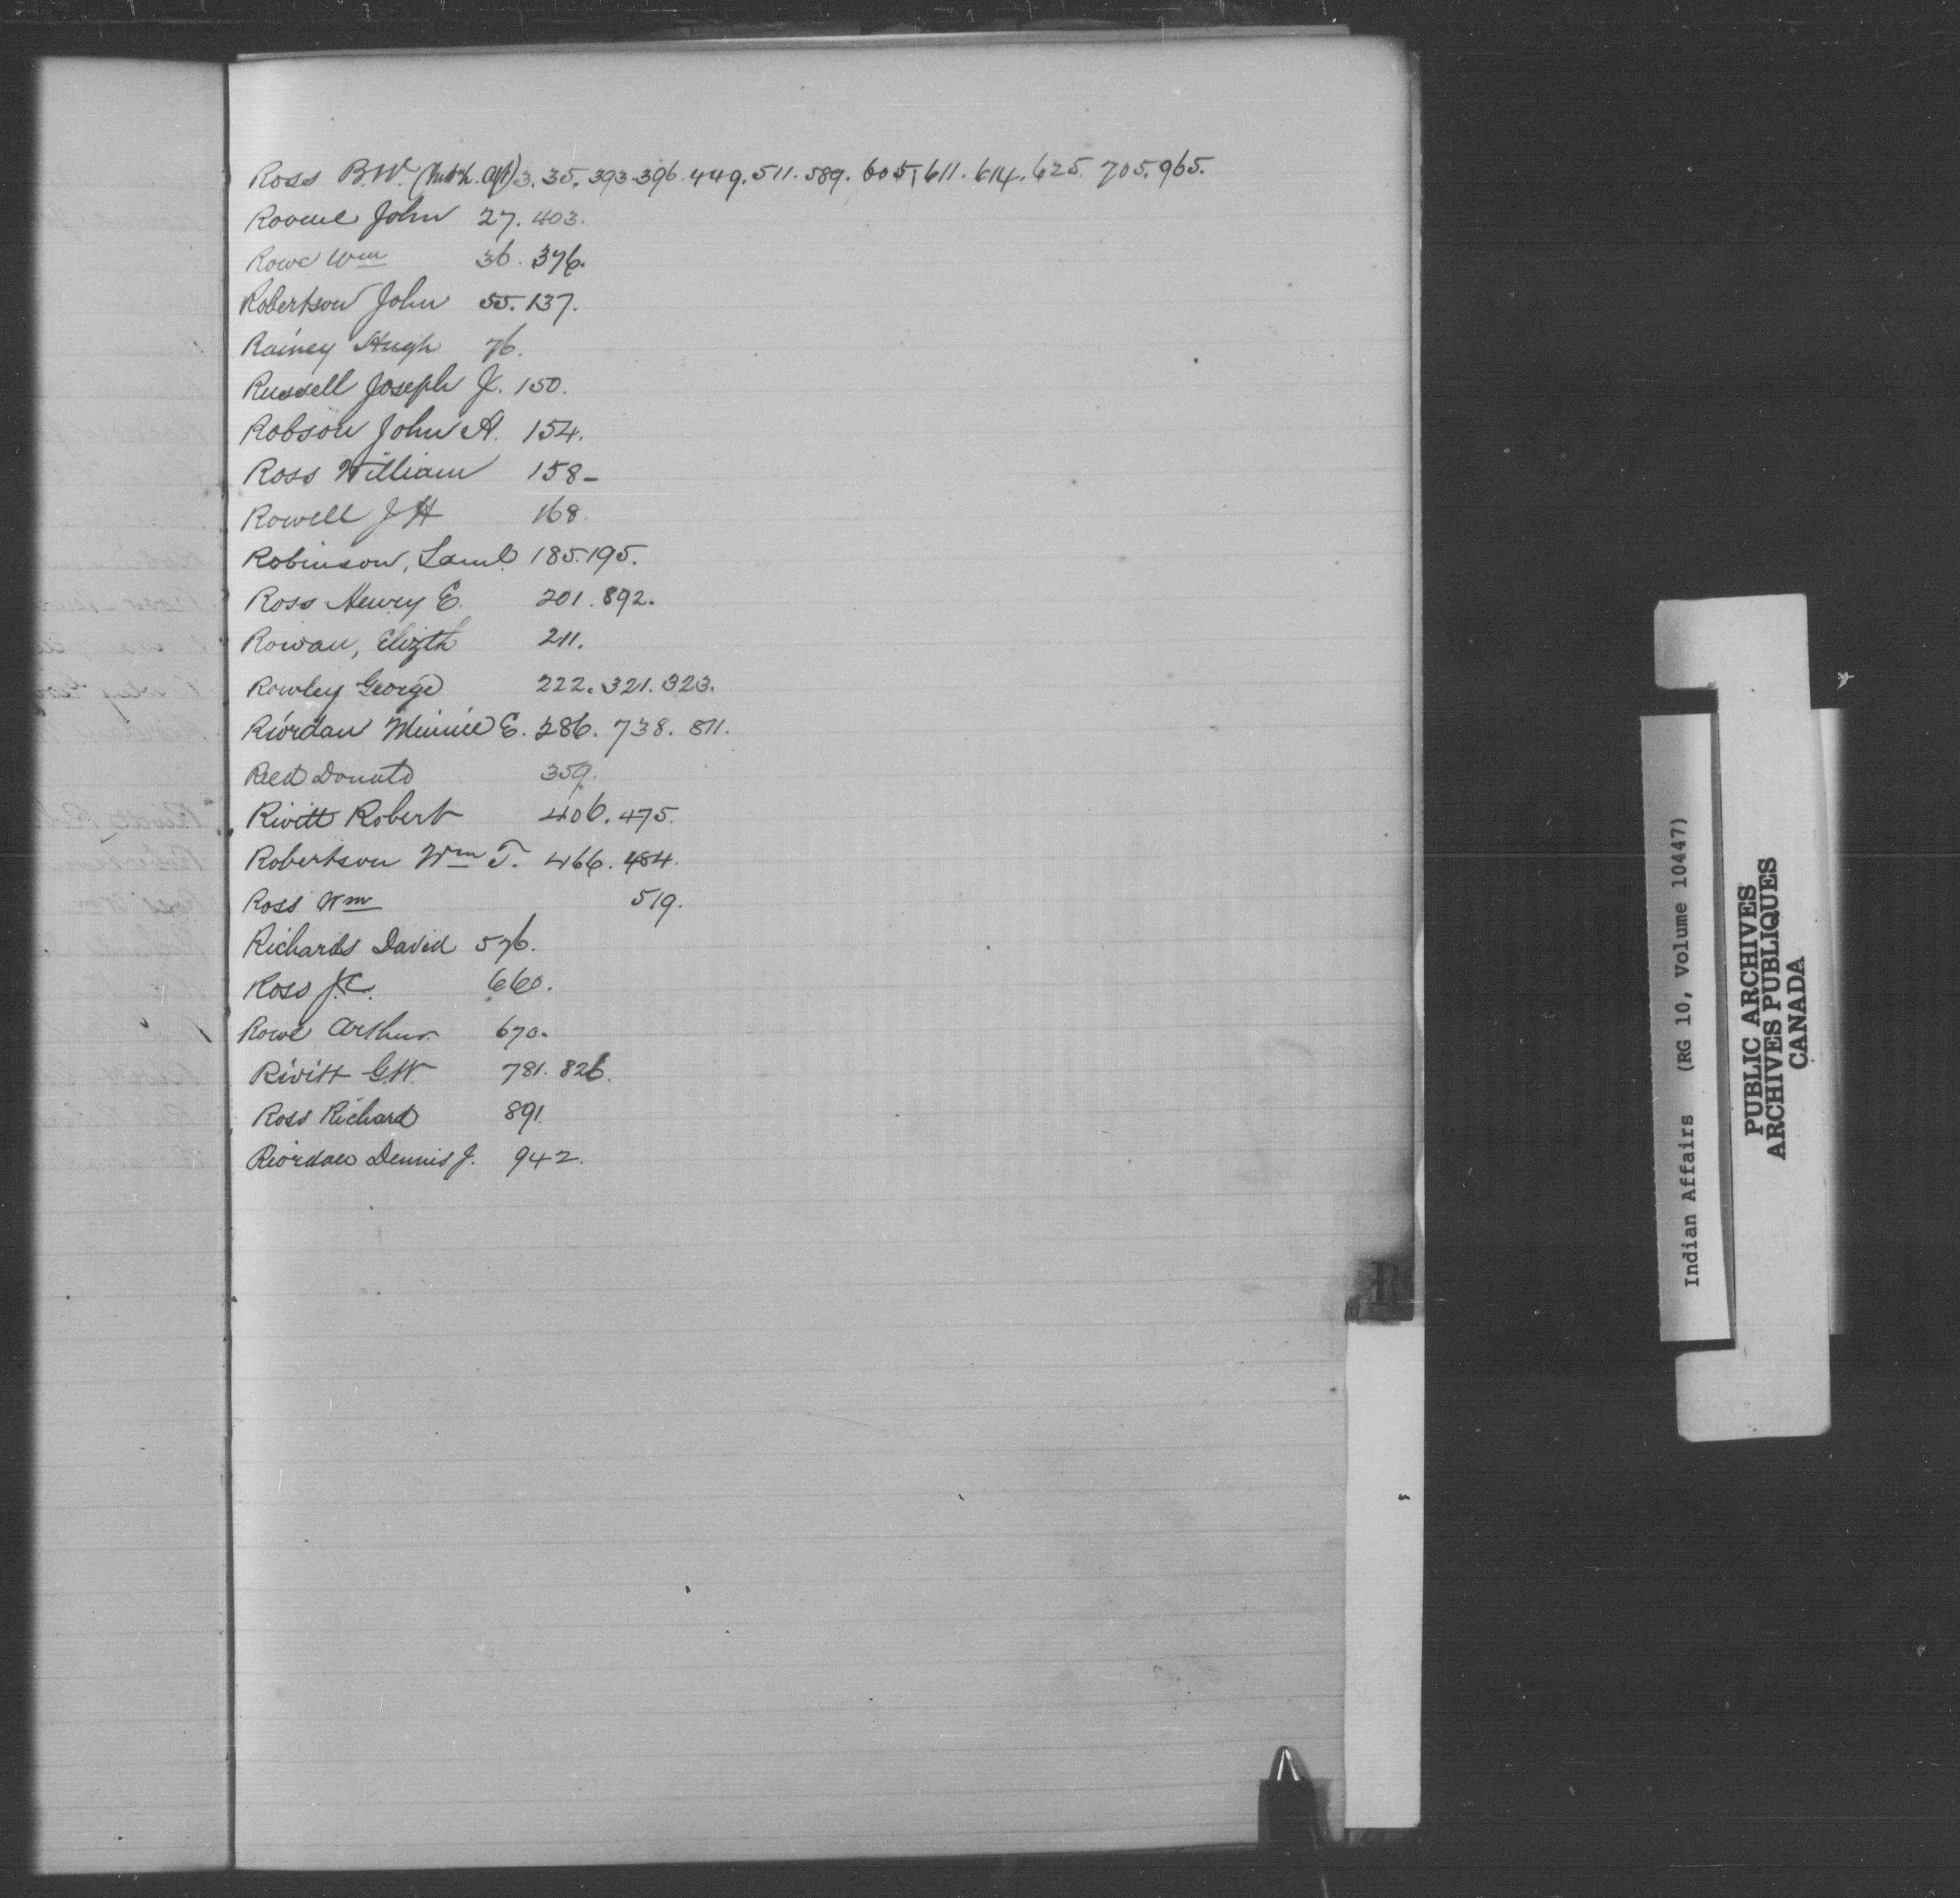 Ross B.W. 3. 35. 393. 396. 449. 511. 589. 605, 611. 614. 625. 705. 965.
John 27. 403.
Rowe Wm 36. 376.
Robertson John 55. 137.
Rainey Hugh 76.
Russell Joseph 150.
Robson John A. 154.
Ross William 158-
Rowell J H 168.
Robinson, Saml. 185. 195.
Ross Henry E. 201. 892.
Rowan, Elizth 211.
Rowley George 222. 321. 323.
Riordan Minnie E. 286. 738. 811.
Reed 359.
Rivitt Robert 406. 475.
Robertson Wm T. 466. 484.
Ross Wm 519.
Richards David 576.
Ross J.C. 660.
Rowe Arthur 670.
Rivitt G.W. 781. 826.
Ross Richard 891.
Riordan Dennis J. 942.
R
Indian Affairs (RG 10, Volume 10447)
PUBLIC ARCHIVES
ARCHIVES PUBLIQUES
CANADA